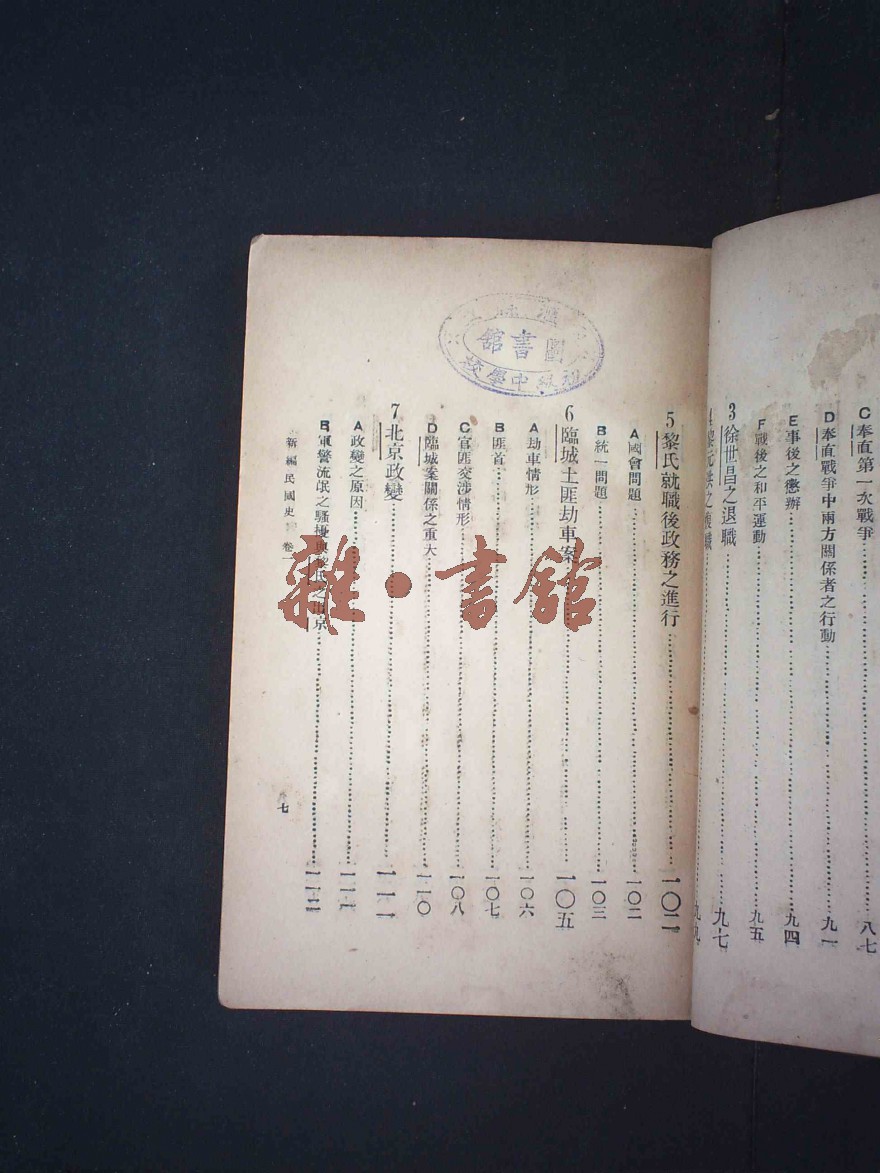 C 奉直第一次戰爭……八七
D 奉直戰爭中兩方關係者之行動……九一
E 事後之懲辦……九四
F 戰後之和平運動……九五
3 徐世昌之退職……九七
4 黎元洪之復職……九九
5 黎氏就職後政務之進行……一〇二
A 國會問題……一〇二
B 統一問題……一〇三
6 臨城土匪劫車案……一〇五
A 劫車情形……一〇六
B 匪首……一〇七
C 官匪交涉情形……一〇八
D 臨城案關係之重大……一一〇
7 北京政變……一一一
A 政變之原因……一一一
B 軍警流氓之騷擾與黎氏之出京……一一二
新編民國史 卷一
七
圖書館
中學校
雜·書館